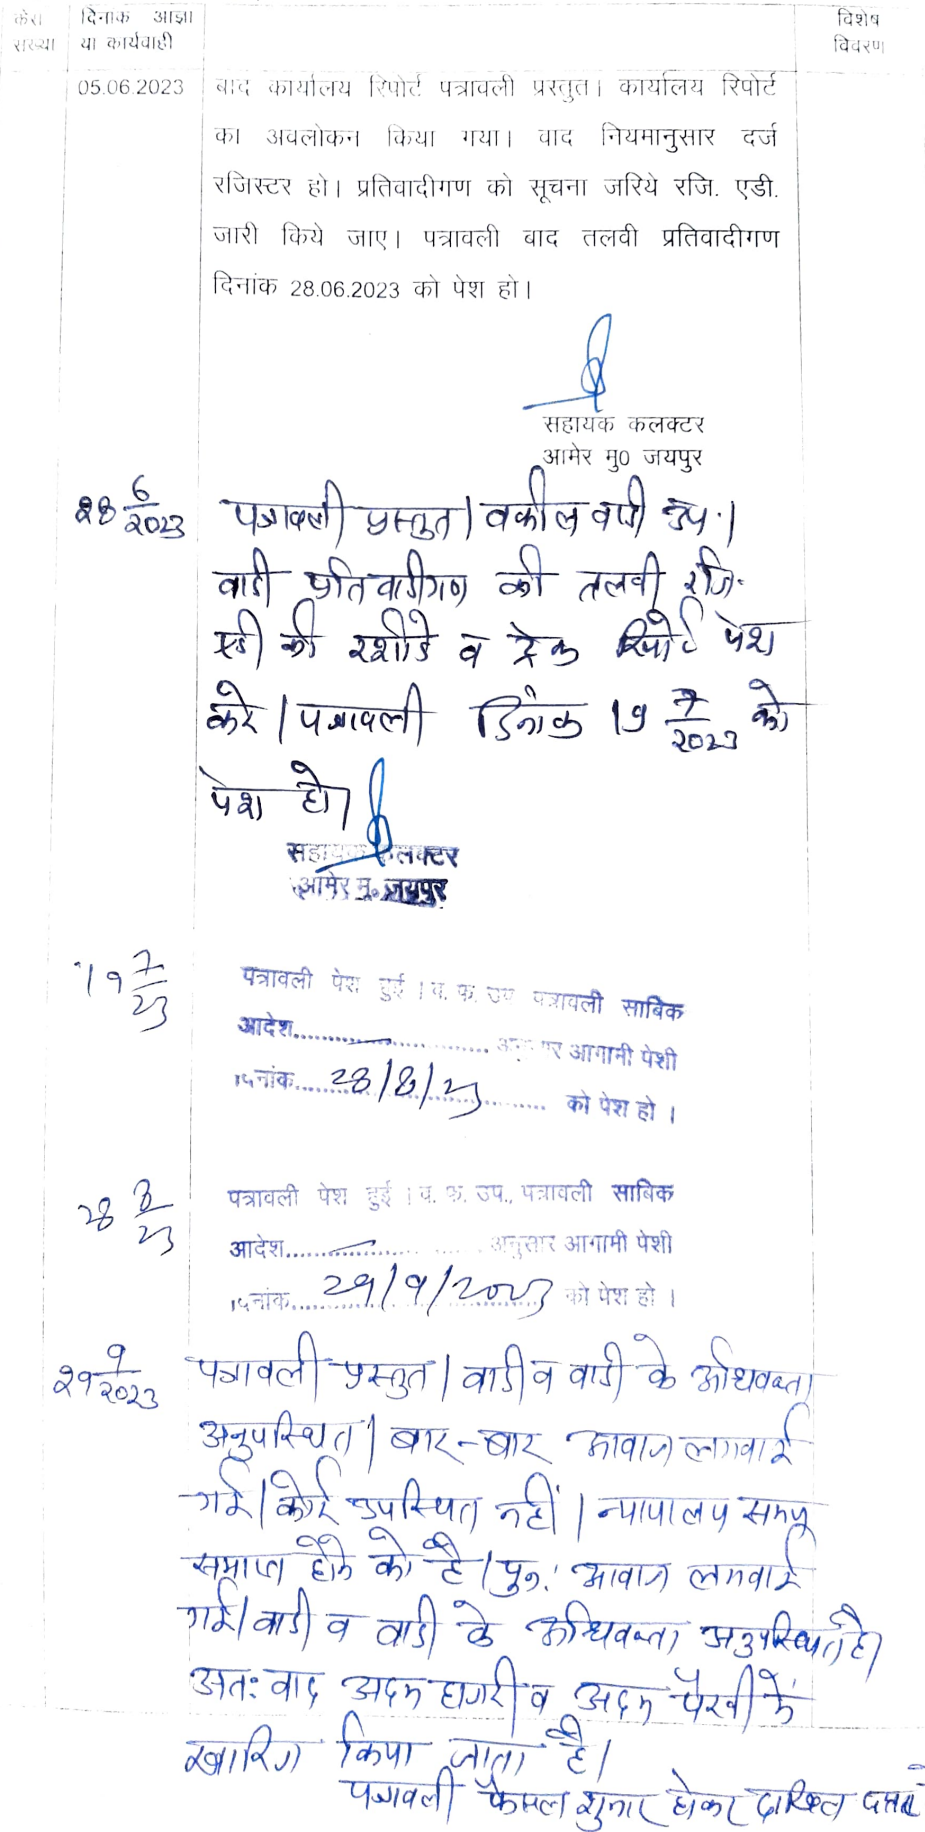 केस दिनांक आज्ञा विशेष
संख्या या कार्यवाही विवरण
05.06.2023 बाद कार्यालय रिपोर्ट पत्रावली प्रस्तुत। कार्यालय रिपोर्ट
का अवलोकन किया गया। वाद नियमानुसार दर्ज
रजिस्टर हो। प्रतिवादीगण को सूचना जरिये रजि. एडी.
जारी किये जाए। पत्रावली बाद तलवी प्रतिवादीगण
दिनांक 28.06.2023 को पेश हो।
सहायक कलक्टर
आमेर मु0 जयपुर
28 6/2023 पत्रावली प्रस्तुत। वकील वादी उप.।
वादी प्रतिवादीगण की तलवी रजि.
एडी की रशीदे व ट्रेक रिपोर्ट पेश
करे। पत्रावली दिनांक 19 7/2023 को
पेश हो।
सहायक कलक्टर
आमेर मु. जयपुर
19 7/23 पत्रावली पेश हुई। व. फ. उप. पत्रावली साबिक
आदेश.......... अनुसार आगामी पेशी
दिनांक.... 28/8/23 .... को पेश हो।
28 8/23 पत्रावली पेश हुई। व. फ. उप., पत्रावली साबिक
आदेश.......... अनुसार आगामी पेशी
दिनांक.... 29/9/2023 को पेश हो।
29 9/2023 पत्रावली प्रस्तुत। वादी व वादी के अधिवक्ता
अनुपस्थित। बार-बार आवाज लगवाई
गई। कोई उपस्थित नहीं। न्यायालय समय
समाप्त होने को है। पुन: आवाज लगवाई
गई। वादी व वादी के अधिवक्ता अनुपस्थित है।
अत: वाद अदम हाजरी व अदम पैरवी में
खारिज किया जाता है।
पत्रावली फैसल शुमार होकर दाखिल दफ्तर